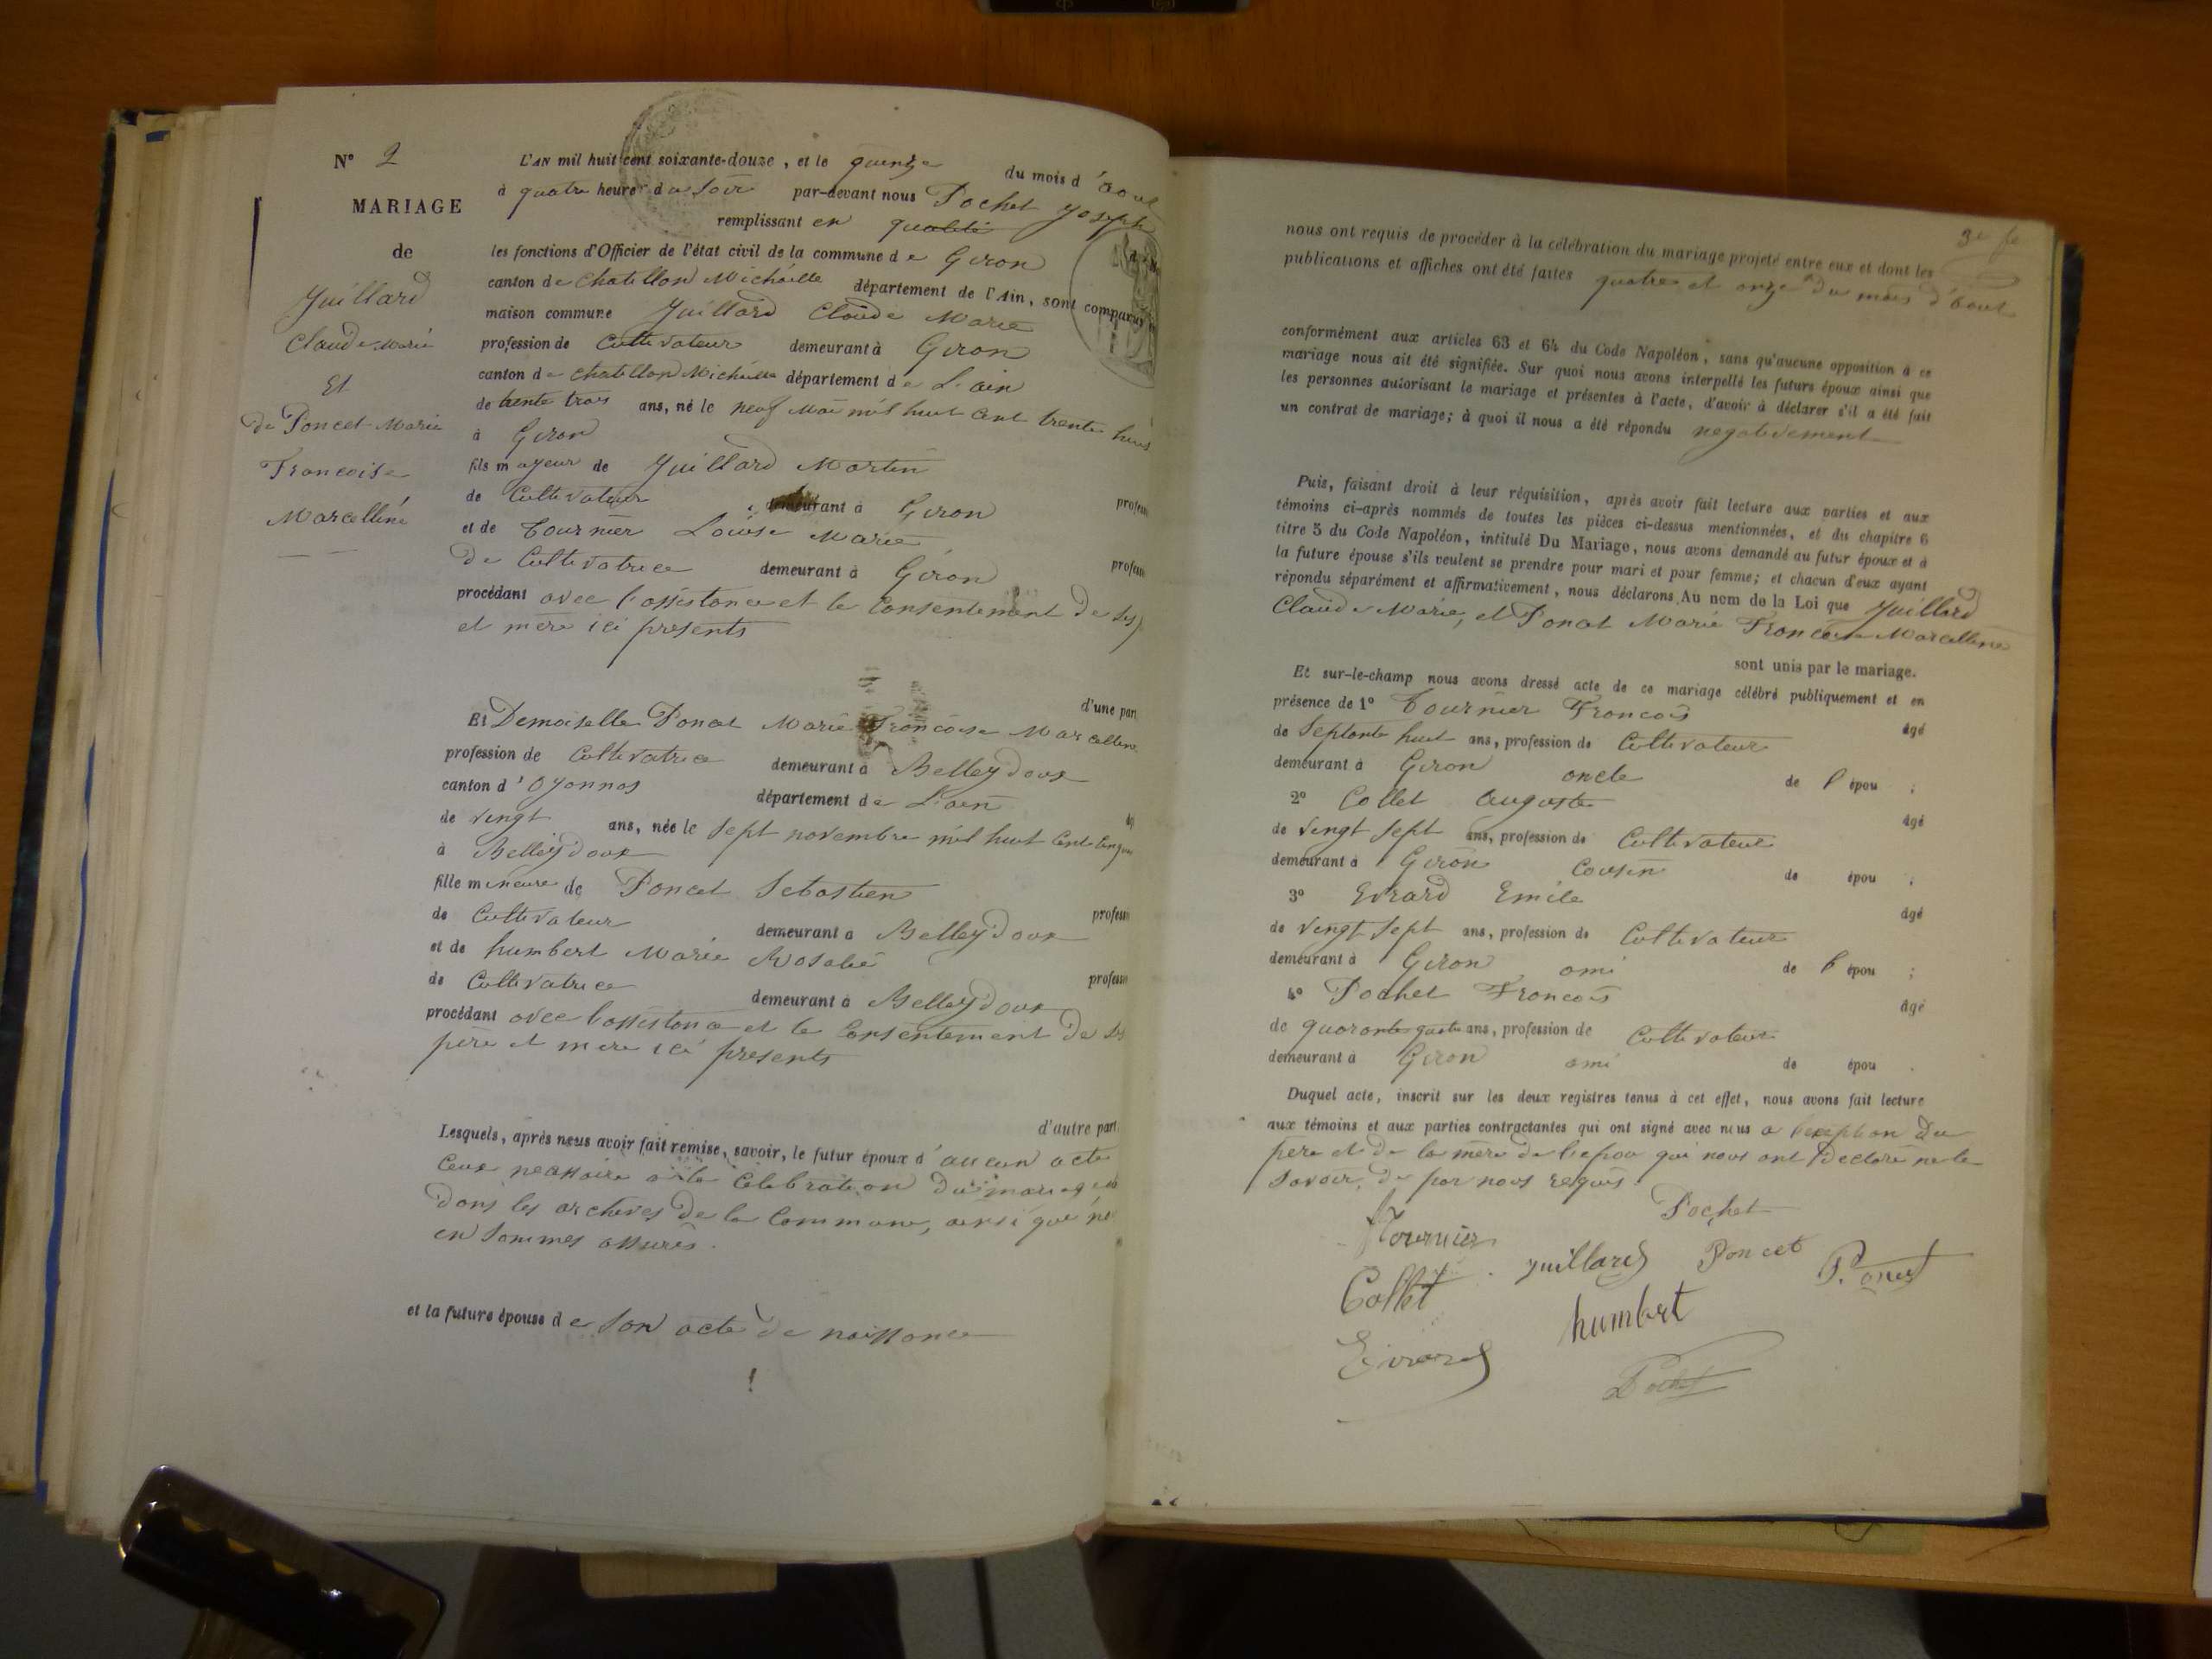 N° 2
MARIAGE
de
Juillard
Claude Marie
Et
de Poncet Marie
Francoise
Marcelline
L'AN mil huit cent soixante-douze, et le quinze du mois d'aout
à quatre heure du soir par-devant nous Pochet Joseph
remplissant en qualité
les fonctions d'Officier de l'état civil de la commune de Giron
canton de Chatillon Michaille département de l'Ain, sont comparus
maison commune Juillard Claude Marie
profession de Cultivateur demeurant à Giron
canton de Chatillon Michaille département de L'ain
de trente trois ans, né le neuf Mai mil huit cent trente huit
à Giron
fils majeur de Juillard Martin
profess
de Cultivateur demeurant à Giron
et de Tournier Louise Marie
profess
de Cultivatrice demeurant à Giron
procédant avec l'assistance et le Consentement de ses
et mère ici présents
d'une part
Et Demoiselle Poncet Marie Francoise Marcelline
profession de Cultivatrice demeurant à Belleydoux
canton d'Oyonnas département de L'ain
de vingt ans, née le sept novembre mil huit cent cinqu
à Belleydoux
fille mineure de Poncet Sebastien
profess
de Cultivateur demeurant à Belleydoux
et de humbert Marie Rosalie
profess
de Cultivatrice demeurant à Belleydoux
procédant avec l'assistance et le Consentement de ses
père et mère ici présents
d'autre part.
Lesquels, après nous avoir fait remise, savoir, le futur époux d'aucun acte
Ceux necessaire a la Célébration du mariage
dans les archives de la Commune, ainsi que
en sommes assurés.
et la future épouse de son acte de naissance
3e
nous ont requis de procéder à la célébration du mariage projeté entre eux et dont les
publications et affiches ont été faites quatre et onze du mois d'aout
conformément aux articles 63 et 64 du Code Napoléon, sans qu'aucune opposition à ce
mariage nous ait été signifiée. Sur quoi nous avons interpellé les futurs époux ainsi que
les personnes autorisant le mariage et présentes à l'acte, d'avoir à déclarer s'il a été fait
un contrat de mariage; à quoi il nous a été répondu negativement
Puis, faisant droit à leur réquisition, après avoir fait lecture aux parties et aux
témoins ci-après nommés de toutes les pièces ci-dessus mentionnées, et du chapitre 6
titre 5 du Code Napoléon, intitulé Du Mariage, nous avons demandé au futur époux et à
la future épouse s'ils veulent se prendre pour mari et pour femme; et chacun d'eux ayant
répondu séparément et affirmativement, nous déclarons Au nom de la Loi que Juillard
Claude Marie, et Poncet Marie Francoise Marcelline
sont unis par le mariage.
Et sur-le-champ nous avons dressé acte de ce mariage célébré publiquement et en
présence de 1° Tournier Francois âgé
de Septante huit ans, profession de Cultivateur
demeurant à Giron oncle de l'épou ;
2° Collet Auguste âgé
de vingt sept ans, profession de Cultivateur
demeurant à Giron Cousin de épou ;
3° Evrard Emile âgé
de vingt sept ans, profession de Cultivateur
demeurant à Giron ami de l'épou ;
4° Pochet Francois âgé
de quarante quatre ans, profession de Cultivateur
demeurant à Giron ami de épou .
Duquel acte, inscrit sur les deux registres tenus à cet effet, nous avons fait lecture
aux témoins et aux parties contractantes qui ont signé avec nous a l'exeption du
père et de la mère de l'epou qui nous ont Déclare ne le
Savoir, de par nous requis
Pochet
Tournier
Juillard Poncet
Collet
humbert
Evrard
Pochet